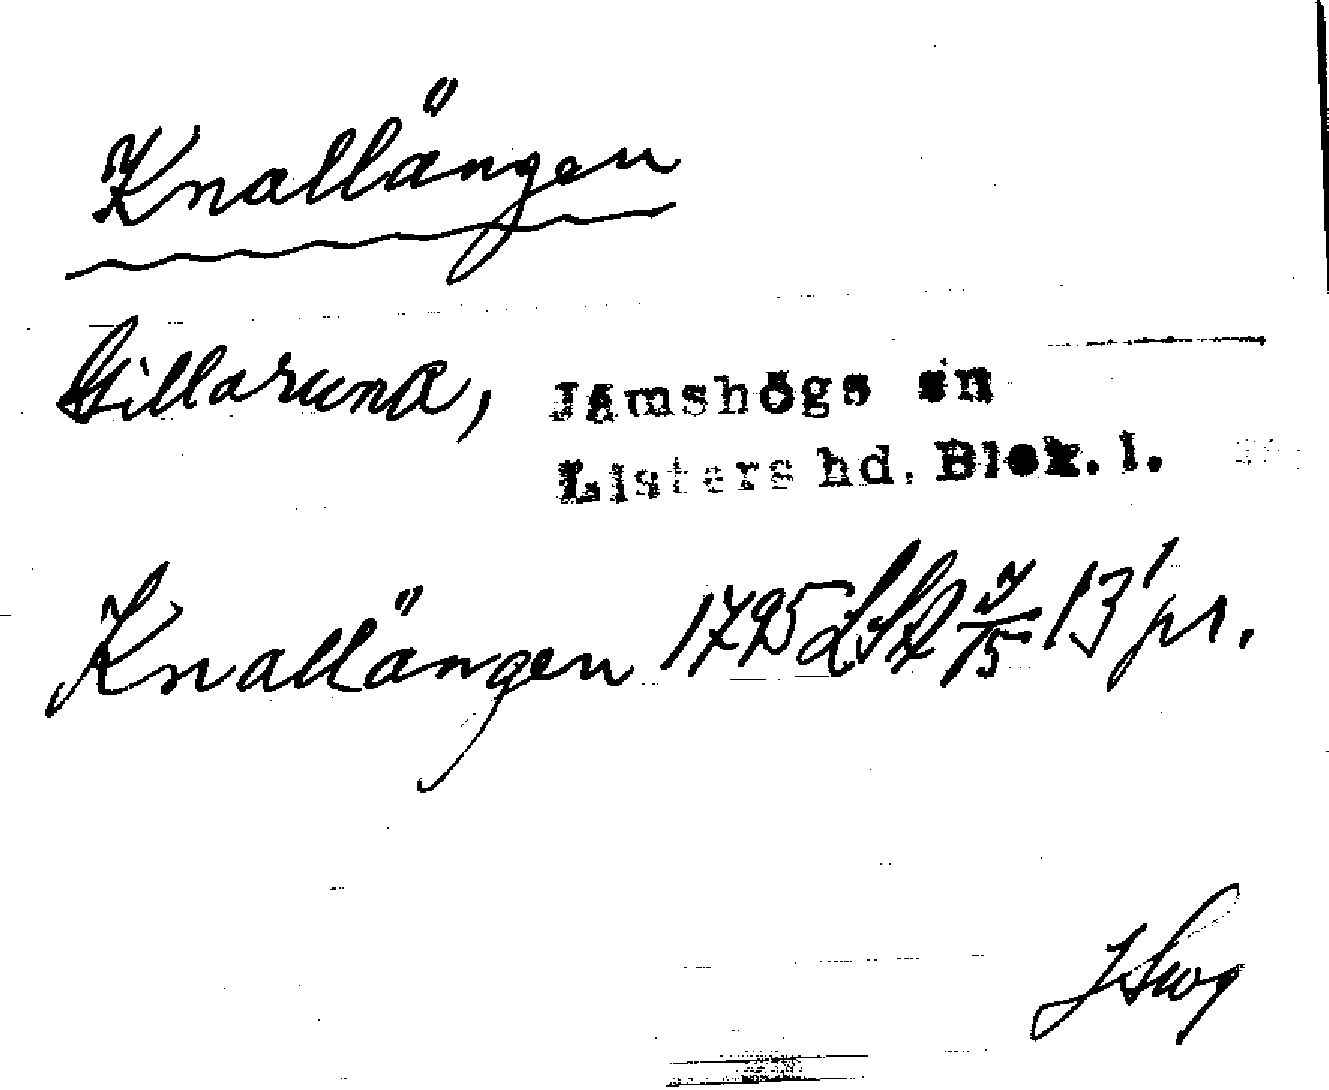 Knallängen
Gillaruna, Jämshögs sn
Listers hd. Blek. l.
Knallängen 1795 LSA 7/15 13' pr.